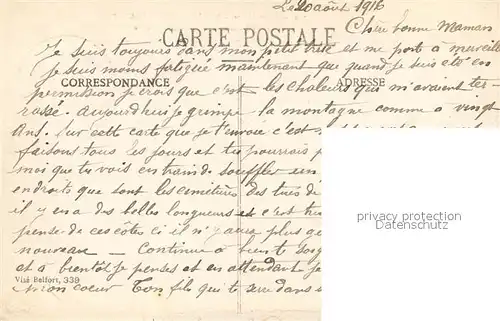 Le 20 août 1916
Chère bonne Maman
CARTE POSTALE
Je suis toujours dans mon petit et me porte à merveille
Je suis moins fatiguée maintenant que quand je suis été en
CORRESPONDANCE
ADRESSE
permission je crois que c'est les chaleurs qui m'avaient ter-
rassé. aujourd'hui je grimpe la montagne comme a vingt
Ans. Sur cette carte que je t'envoie c'est
faisons tous les jours et tu pourrais
moi que tu vois en train de souffler
endroits que sont les cimetières des
il y en a des belles longueurs et c'est
pense de ces côtés ci il n'y aura plus
nouveau — Continue à bien te
et à bientôt je penses et en attendant je
Visé Belfort, 339
mon coeur Ton fils que te serre dans
privacy protection
www.ansichtskarten-center.de